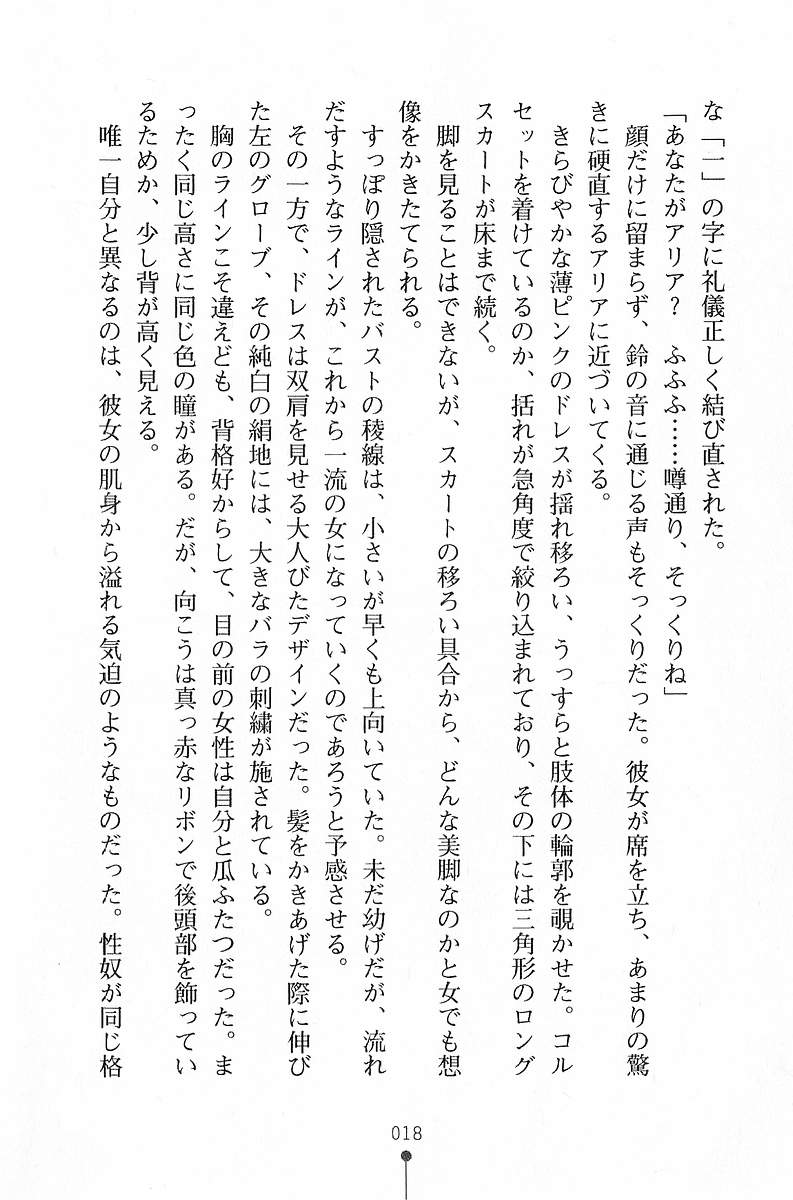 な「一」の字に礼儀正しく結び直された。
「あなたがアリア？　ふふふ……噂通り、そっくりね」
顔だけに留まらず、鈴の音に通じる声もそっくりだった。彼女が席を立ち、あまりの驚
きに硬直するアリアに近づいてくる。
きらびやかな薄ピンクのドレスが揺れ移ろい、うっすらと肢体の輪郭を覗かせた。コル
セットを着けているのか、括れが急角度で絞り込まれており、その下には三角形のロング
スカートが床まで続く。
脚を見ることはできないが、スカートの移ろい具合から、どんな美脚なのかと女でも想
像をかきたてられる。
すっぽり隠されたバストの稜線は、小さいが早くも上向いていた。未だ幼げだが、流れ
だすようなラインが、これから一流の女になっていくのであろうと予感させる。
その一方で、ドレスは双肩を見せる大人びたデザインだった。髪をかきあげた際に伸び
た左のグローブ、その純白の絹地には、大きなバラの刺繍が施されている。
胸のラインこそ違えども、背格好からして、目の前の女性は自分と瓜ふたつだった。ま
ったく同じ高さに同じ色の瞳がある。だが、向こうは真っ赤なリボンで後頭部を飾ってい
るためか、少し背が高く見える。
唯一自分と異なるのは、彼女の肌身から溢れる気迫のようなものだった。性奴が同じ格
018